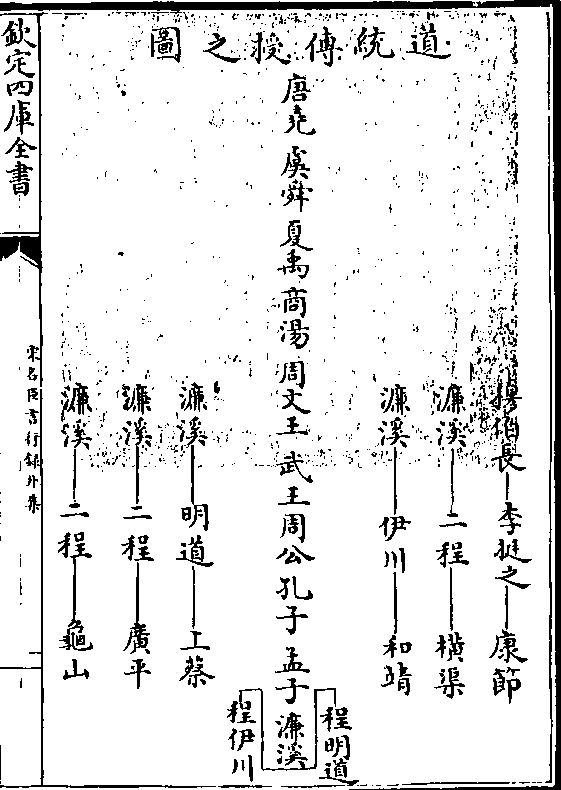 道統傳授之圖
穆伯長 李挺之 康節
濂溪 二程 橫渠
濂溪 伊川 和靖
唐堯虞舜夏禹商湯周文王武王周公孔子孟子濂溪
程明道
程伊川
濂溪 明道 上蔡
濂溪 二程 廣平
濂溪 二程 龜山
欽定四庫全書
宋名臣言行録外集
一